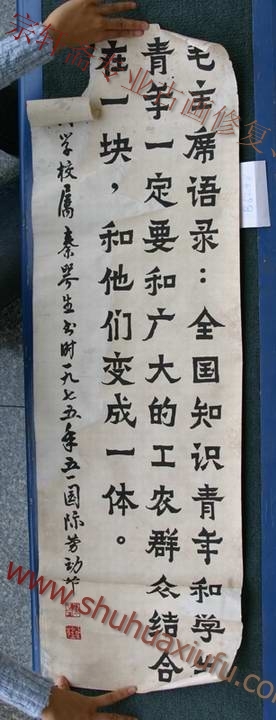 毛主席语录：全国知识青年和学生
青年一定要和广大的工农群众结合
在一块，和他们变成一体。
学校属秦咢生书时一九七五年五一国际劳动节
www.shuhuaxiufu.com